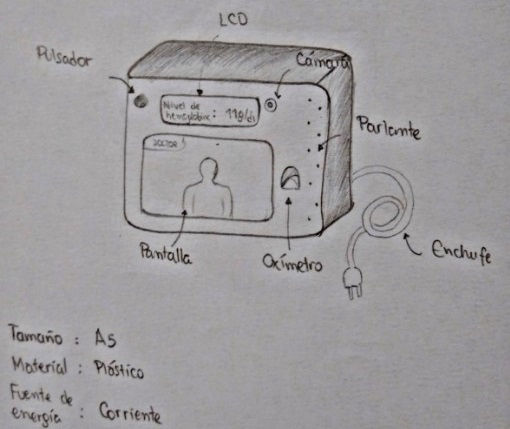 LCD
Pulsador
Cámara
Nivel de
hemoglobina : 11g/dl
Parlante
DOCTOR
Pantalla
Oxímetro
Enchufe
Tamaño : A5
Material : Plástico
Fuente de
energía : Corriente